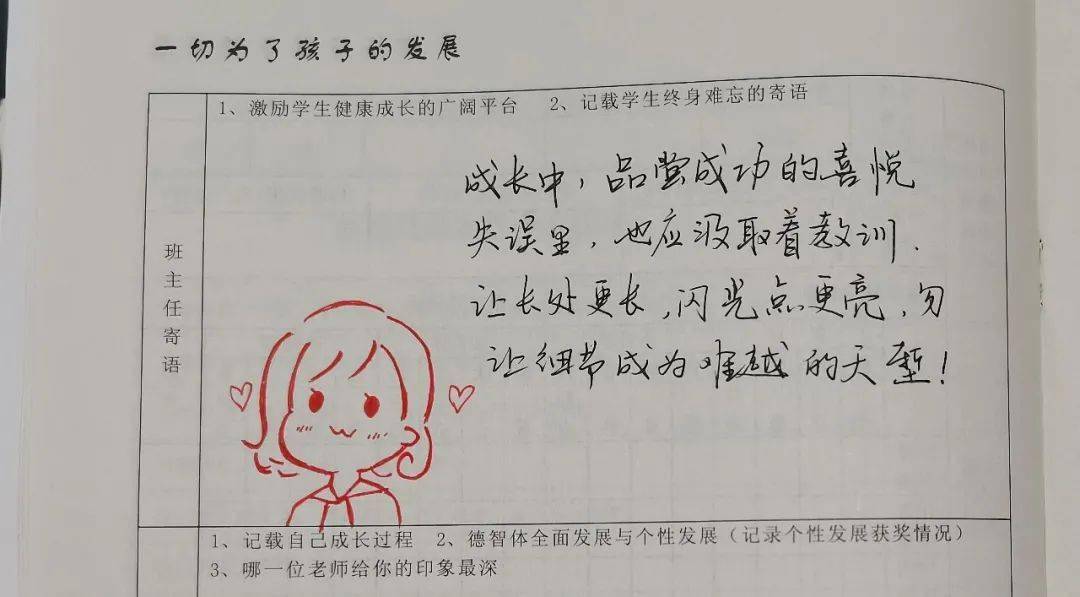 一切为了孩子的发展
1、激励学生健康成长的广阔平台 2、记载学生终身难忘的寄语
班主任寄语
成长中，品尝成功的喜悦
失误里，也应汲取着教训．
让长处更长，闪光点更亮，勿
让细节成为难越的天堑！
1、记载自己成长过程 2、德智体全面发展与个性发展（记录个性发展获奖情况）
3、哪一位老师给你的印象最深